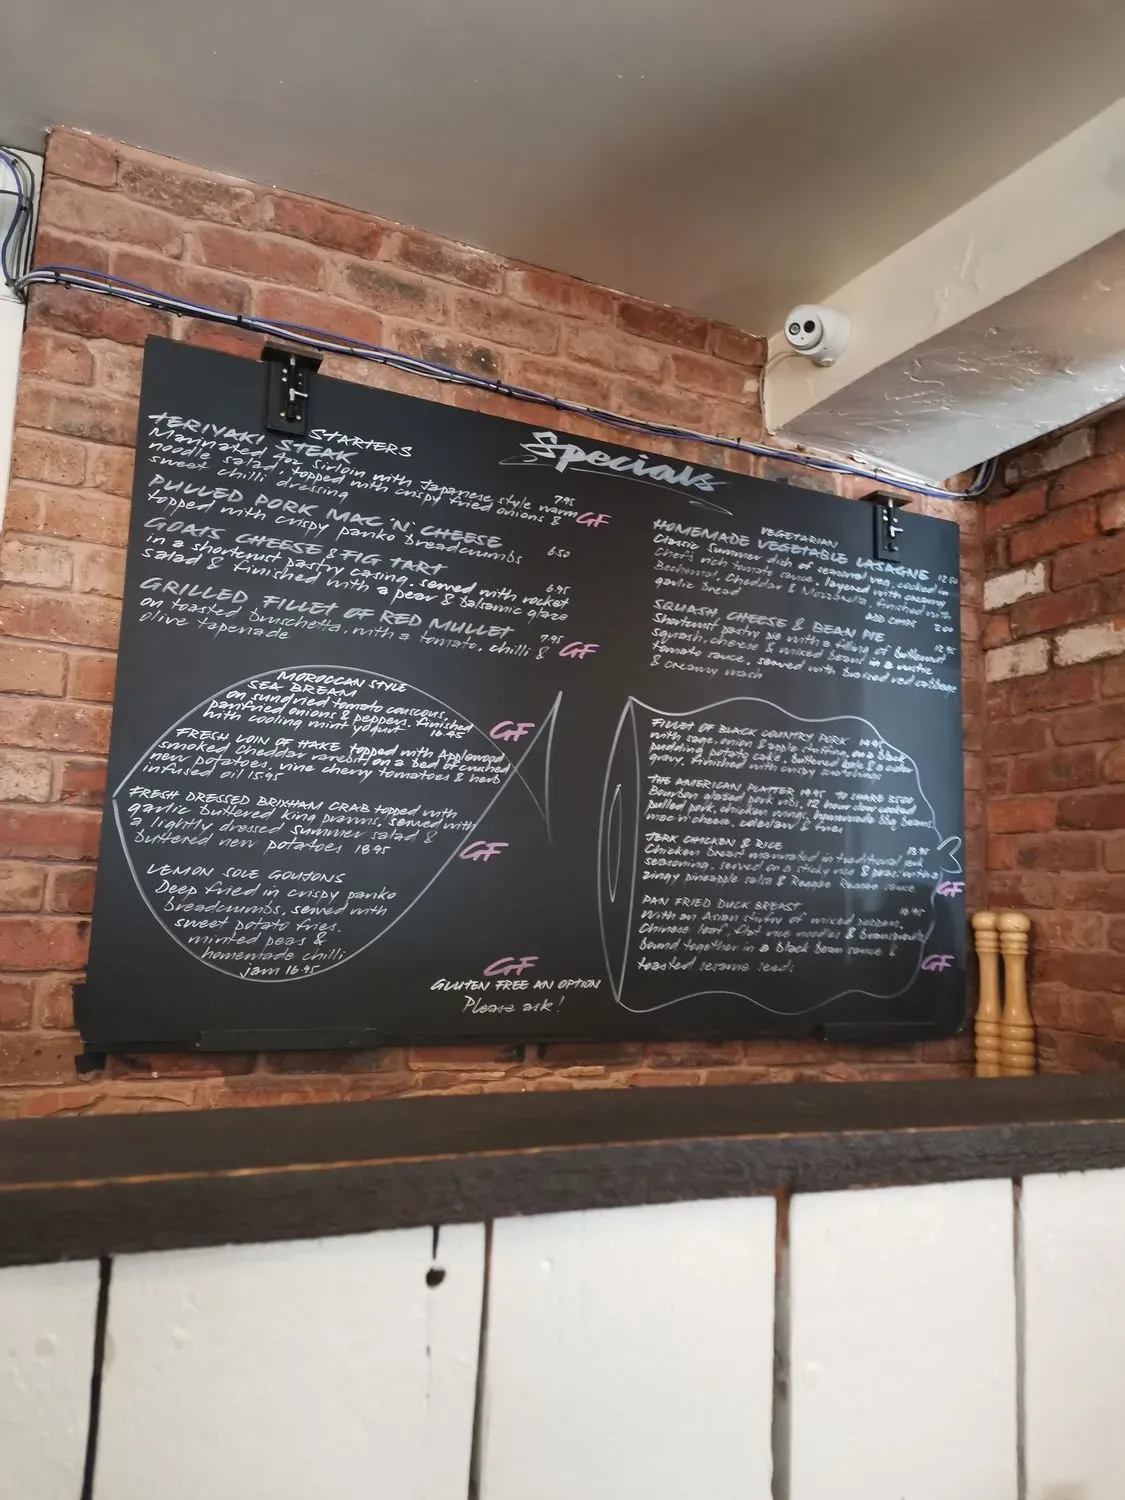 Specials
STARTERS
TERIYAKI STEAK
Marinated 7oz Sirloin with Japanese style warm
noodle salad, topped with crispy fried onions &
sweet chilli dressing 7.95 GF
PULLED PORK MAC 'N' CHEESE
topped with crispy panko breadcrumbs 6.50
GOATS CHEESE & FIG TART
in a shortcrust pastry casing, served with rocket
salad & finished with a pear & balsamic glaze 6.95
GRILLED FILLET OF RED MULLET
on toasted bruschetta, with a tomato, chilli &
olive tapenade 7.95 GF
MOROCCAN STYLE
SEA BREAM
on sundried tomato couscous,
panfried onions & peppers, finished
with cooling mint yogurt 16.45 GF
FRESH LOIN OF HAKE topped with Applewood
smoked Cheddar rarebit, on a bed of crushed
new potatoes, vine cherry tomatoes & herb
infused oil 15.95
FRESH DRESSED BRIXHAM CRAB topped with
garlic buttered king prawns, served with
a lightly dressed summer salad &
buttered new potatoes 18.95 GF
LEMON SOLE GOUJONS
Deep fried in crispy panko
breadcrumbs, served with
sweet potato fries,
minted peas &
homemade chilli
jam 16.95
GF
GLUTEN FREE AN OPTION
Please ask!
VEGETARIAN
HOMEMADE VEGETABLE LASAGNE
Classic Summer dish of seasonal veg, cooked in
Chef's rich tomato sauce, layered with creamy
Bechamel, Cheddar & Mozzarella, finished with
garlic bread
ADD CHIPS 2.00
SQUASH, CHEESE & BEAN PIE 12.95
Shortcrust pastry pie with a filling of butternut
squash, cheese & mixed beans in a rustic
tomato sauce, served with braised red cabbage
& creamy mash
FILLET OF BLACK COUNTRY PORK
with sage, onion & apple stuffing, on a black
pudding potato cake, buttered kale & a cider
gravy, finished with crispy scratchings
THE AMERICAN PLATTER 19.95 TO SHARE 35.00
Bourbon glazed pork ribs, 12 hour slow cooked
pulled pork, chicken wings, homemade BBQ beans,
mac n cheese, coleslaw & fries
JERK CHICKEN & RICE
Chicken breast marinated in traditional jerk
seasoning, served on a sticky rice & peas, with a
zingy pineapple salsa & Reggae Reggae sauce GF
PAN FRIED DUCK BREAST
With an Asian stirfry of mixed peppers,
Chinese leaf, flat rice noodles & beansprouts
bound together in a black bean sauce &
toasted sesame seeds GF